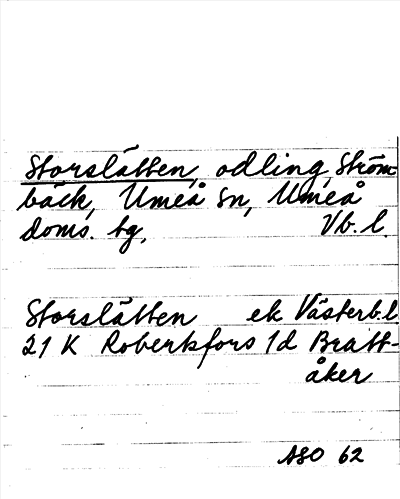 Storslätten, odling, Ström-
bäck, Umeå sn, Umeå
doms. tg, Vb. l.
Storslätten ek Västerb.l
21 K Robertsfors 1d Bratt-
åker
ASO 62